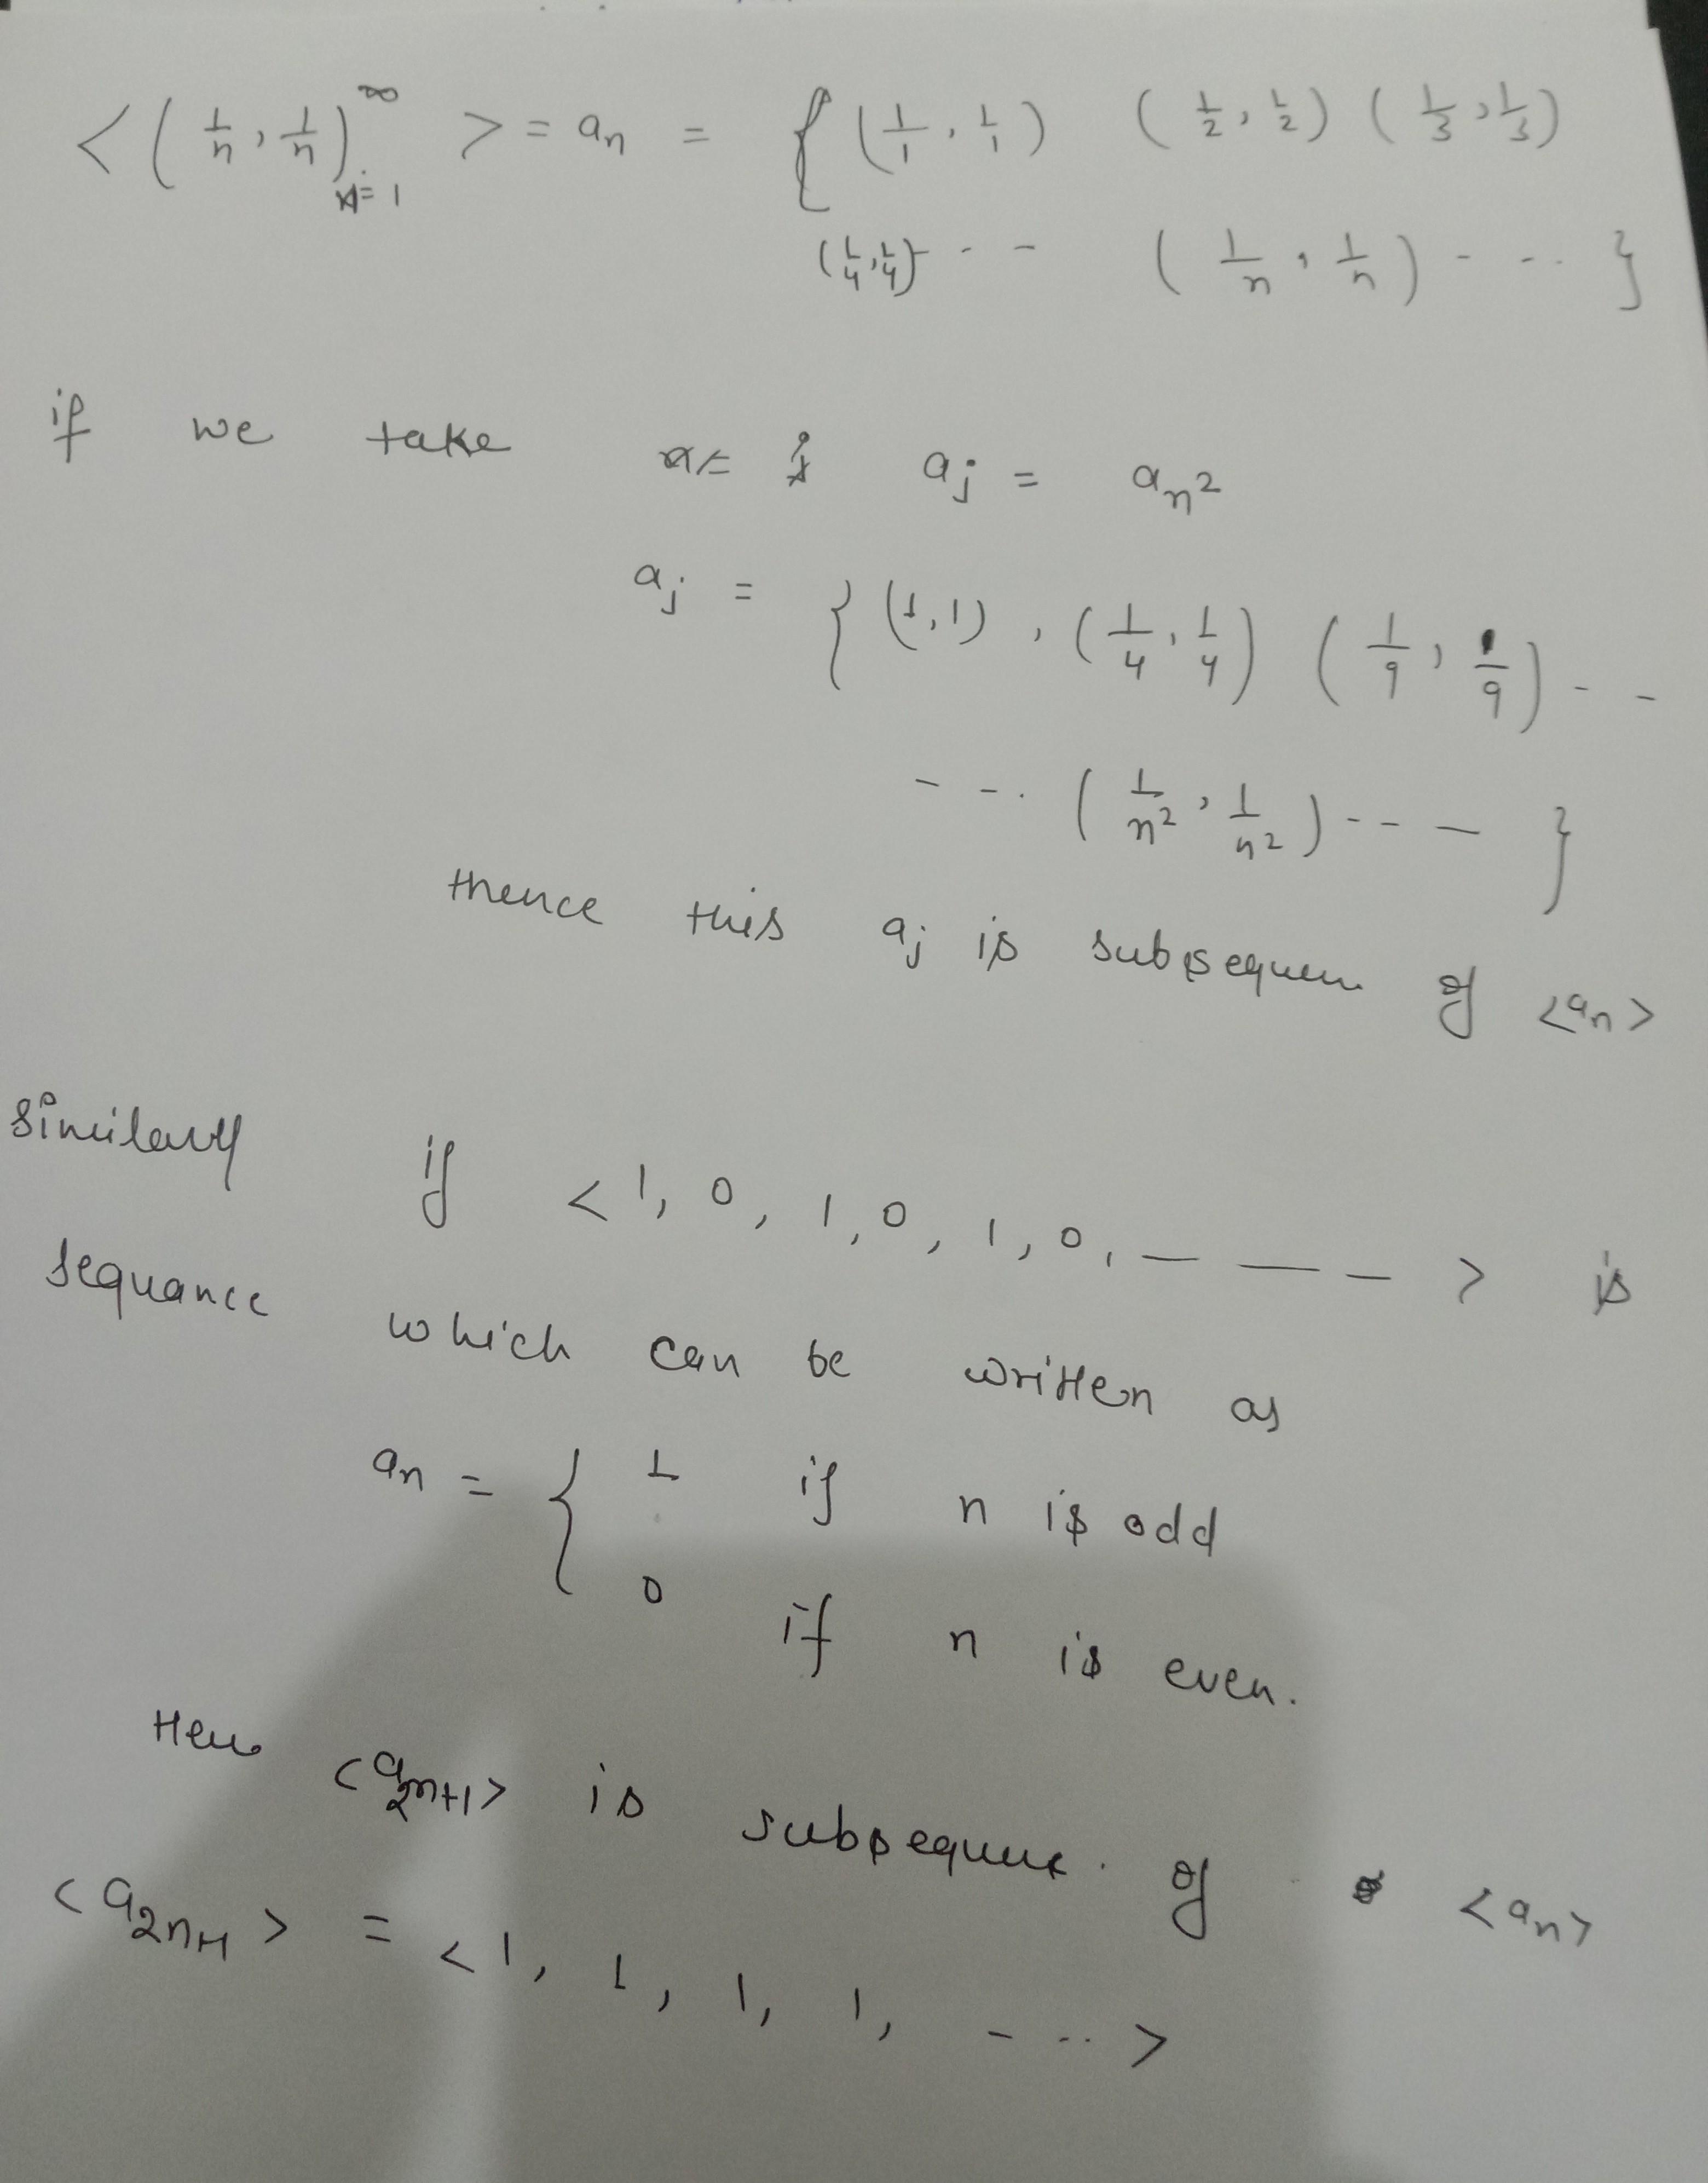 < (1/n, 1/n)^∞_{n=1} > = an = { (1/1, 1/1) (1/2, 1/2) (1/3, 1/3)
(1/4, 1/4) - - (1/n, 1/n) - - .. }
if we take aj = a_{n²}
aj = { (1, 1), (1/4, 1/4) (1/9, 1/9) - -
- - . (1/n², 1/n²) - - — }
thence this aj is subsequen of <an>
similarly if < 1, 0, 1, 0, 1, 0, — — — > is
sequance which can be written as
an = { 1 if n is odd
0 if n is even.
Here <a_{2n+1}> is subsequence . of <an>
<a_{2n+1}> = <1, 1, 1, 1, - .. >